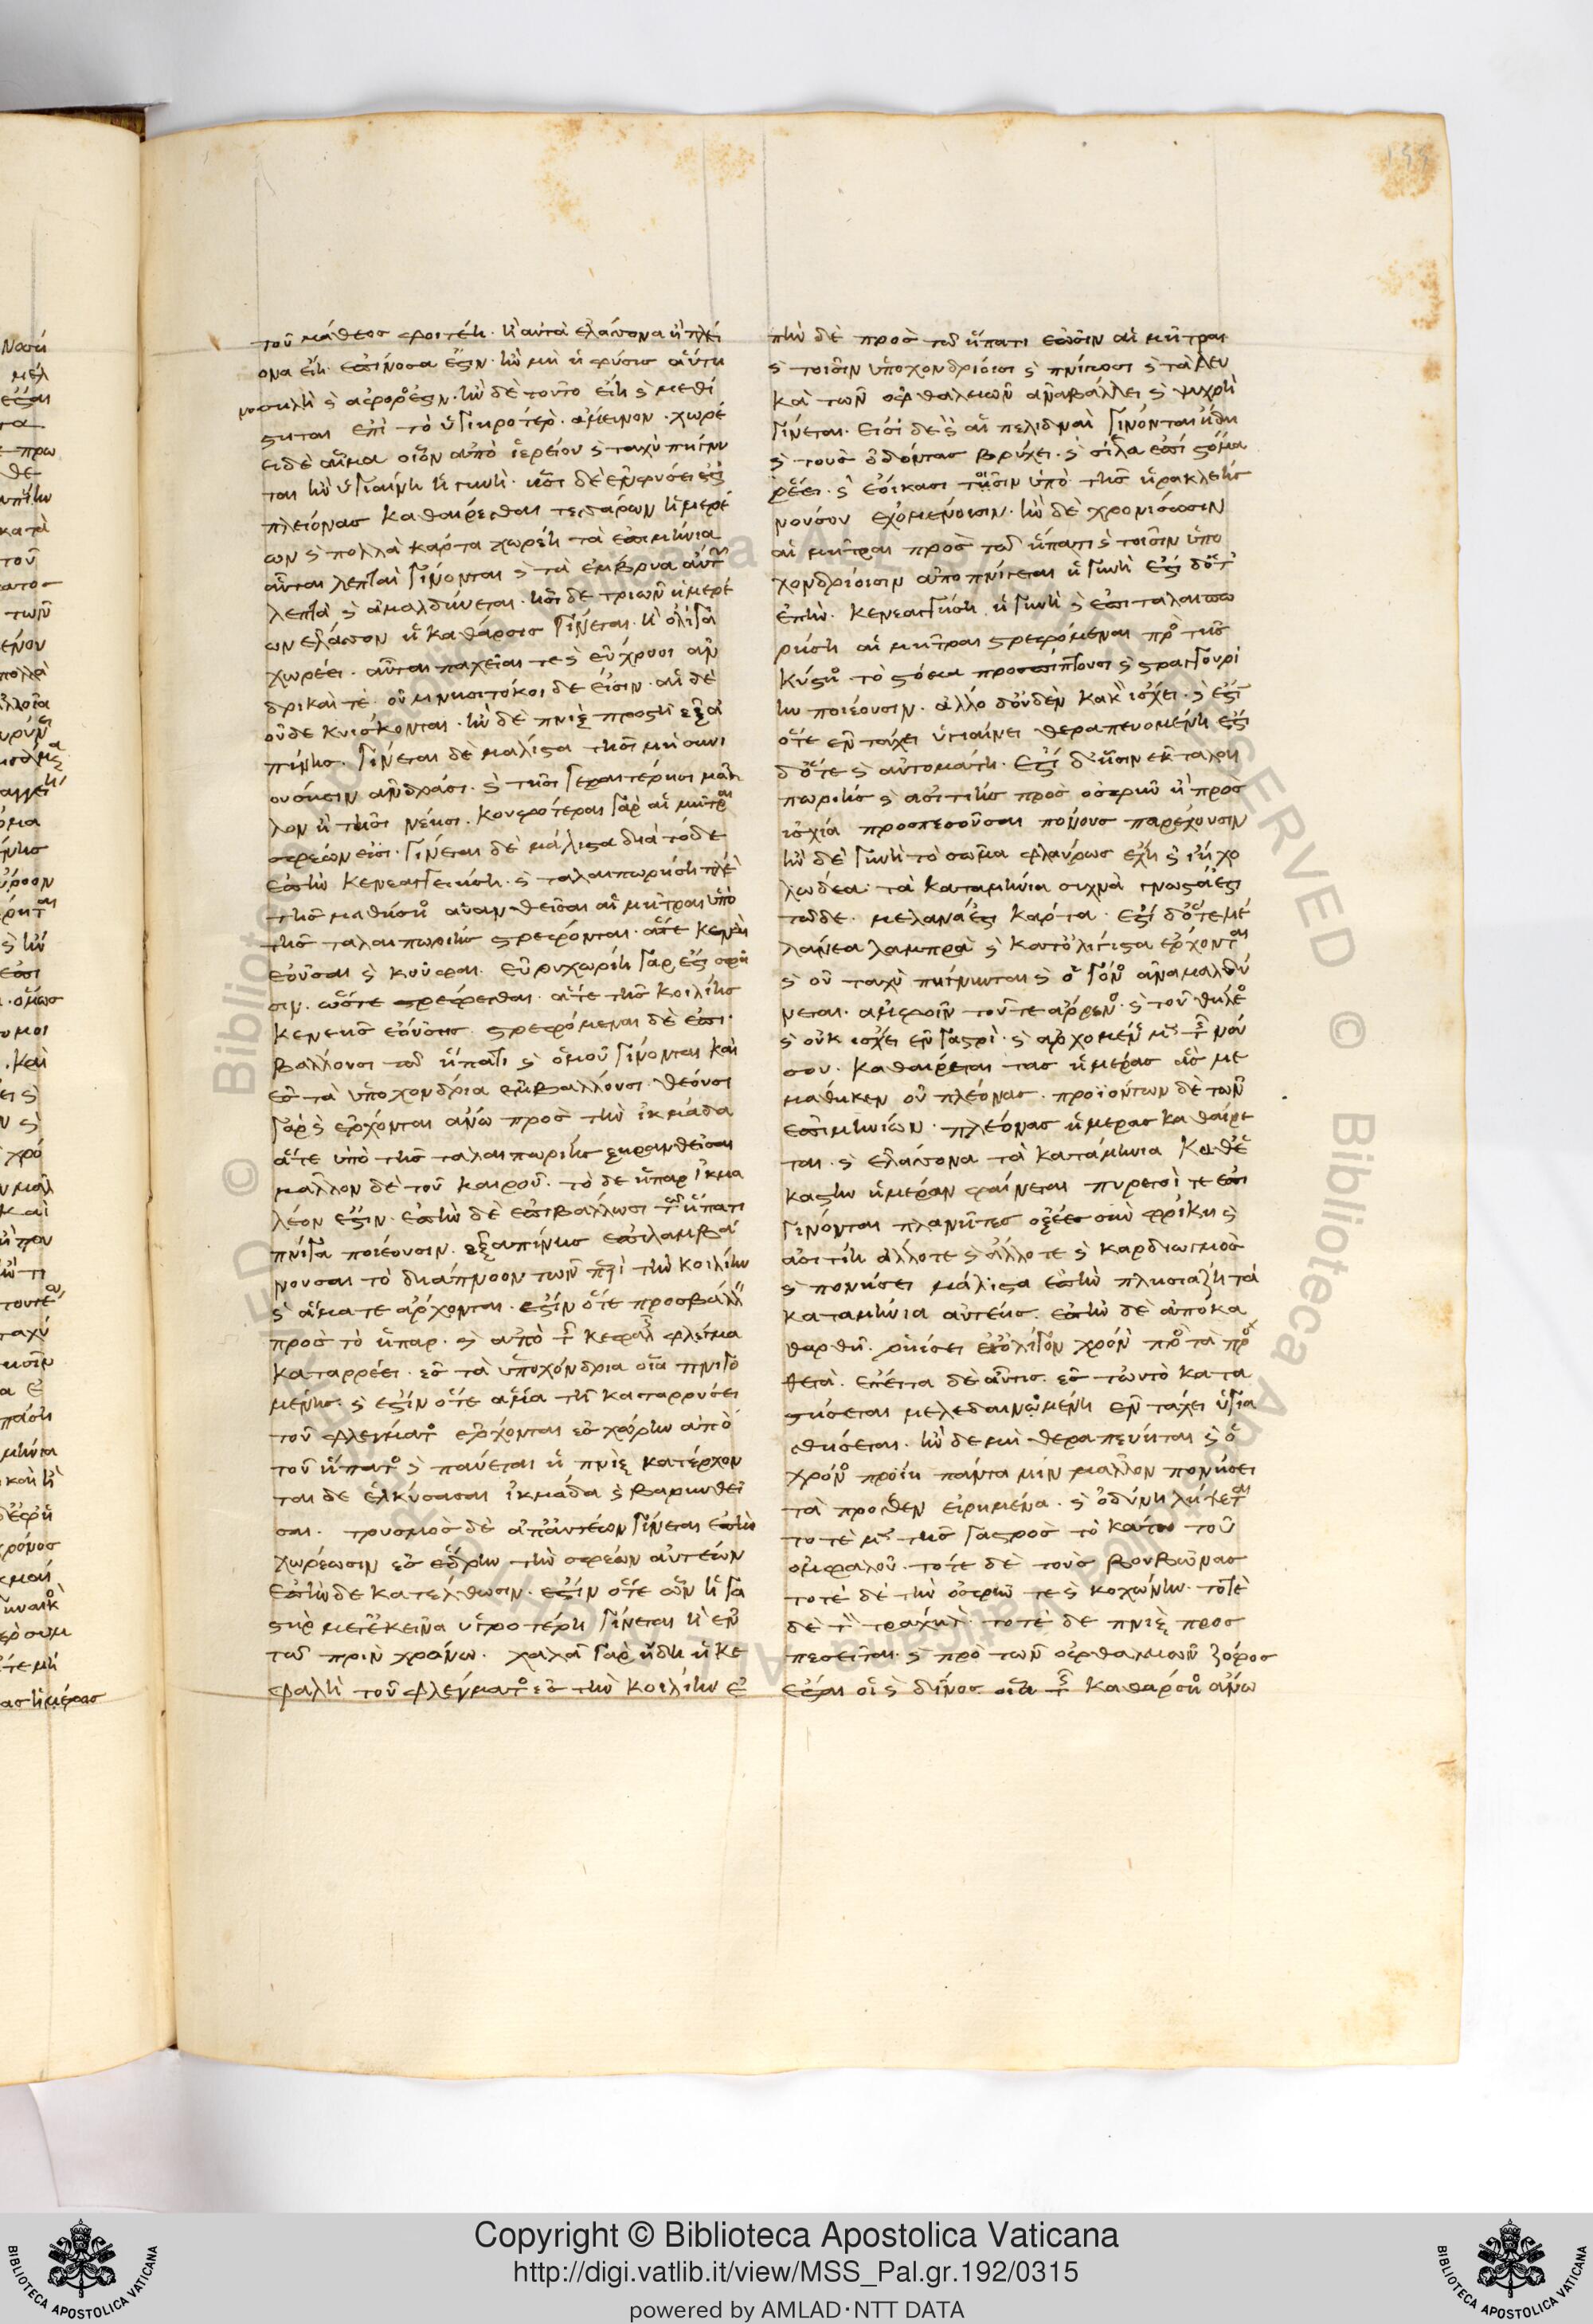 τοῦ μάθεος φοιτέη· ἢ αὐτὰ ἐλάσσονα ἢ πλεί
ονα εἴη ἐπίνοσά ἐστιν· ἢν μὴ ἡ φύσις αὕτη
νοσηλὴ καὶ ἄφορός ἐστιν· ἢν δὲ τοῦτο εἴη καὶ μεθί
σηται ἐπὶ τὸ ὑγιηρότερον ἄμεινον· χωρέ
ει δὲ αἷμα οἷον ἀπὸ ἱερείου καὶ ταχὺ πήγνυ
ται ἢν ὑγιαίνη ἡ γυνή· ᾗσι δὲ ἐν φύσει ἐστὶ
πλείονας καθαίρεσθαι τεσσάρων ἡμερέ
ων καὶ πολλὰ κάρτα χωρέη τὰ ἐπιμήνια
αὗται λεπταὶ γίνονται καὶ τὰ ἔμβρυα αὐτῶν
λεπτὰ καὶ ἀμαλδύνεται· ᾗσι δὲ τριῶν ἡμερέ
ων ἔλασσον ἡ κάθαρσις γίνεται· ἢ ὀλίγα
χωρέει· αὗται παχεῖαί τε καὶ εὔχροοι ἀν
δρικαί τε· οὐ μνησιτόκοι δέ εἰσιν· αἱ δὲ
οὐδὲ κυίσκονται· ἢν δὲ πνὶξ προστῇ ἐξα
πίνης· γίνεται δὲ μάλιστα τῇσι μὴ συνι
ούσησιν ἀνδράσι· καὶ τῇσι γεραιτέρησι μᾶλ
λον ἢ τῇσι νέησι· κουφότεραι γὰρ αἱ μῆτραι
σφέων εἰσί· γίνεται δὲ μάλιστα διὰ τόδε
ἐπὴν κενεαγγειήση· καὶ ταλαιπωρήση πλέον
τῆς μαθήσιος αὐανθεῖσαι αἱ μῆτραι ὑπὸ
τῆς ταλαιπωρίης στρέφονται· ἅτε κεναὶ
ἐοῦσαι καὶ κοῦφαι· εὐρυχωρίη γάρ ἐστι σφῆ
σιν· ὥστε στρέφεσθαι· ἅτε τῆς κοιλίης
κενεῆς ἐούσης· στρεφόμεναι δὲ ἐπι
βάλλουσι τῷ ἥπατι καὶ ὁμοῦ γίνονται καὶ
ἐς τὰ ὑποχόνδρια ἐμβάλλουσι· θέουσι
γὰρ καὶ ἔρχονται ἄνω πρὸς τὴν ἰκμάδα
ἅτε ὑπὸ τῆς ταλαιπωρίης ξηρανθεῖσαι
μᾶλλον δὲ τοῦ καιροῦ· τὸ δὲ ἧπαρ ἰκμα
λέον ἐστίν· ἐπὴν δὲ ἐπιβάλλωσι τῷ ἥπατι
πνίγα ποιέουσιν· ἐξαπίνης ἐπιλαμβά
νουσαι τὸ διάπνοον τῶν περὶ τὴν κοιλίην
καὶ ἅμα τε ἄρχονται· ἔστιν ὅτε προσβάλλειν
πρὸς τὸ ἧπαρ· καὶ ἀπὸ τῆς κεφαλῆς φλέγμα
καταρρέει· ἐς τὰ ὑποχόνδρια οἷα πνιγο
μένης· καὶ ἔστιν ὅτε ἅμα τῇ καταρρύσει
τοῦ φλέγματος ἔρχονται ἐς χώρην ἀπὸ
τοῦ ἥπατος καὶ παύεται ἡ πνὶξ κατέρχον
ται δὲ ἑλκύσασαι ἰκμάδα καὶ βαρυνθεῖ
σαι· τρυσμὸς δὲ ἀπ' αὐτέων γίνεται ἐπὴν
χωρέωσιν ἐς ἕδρην τὴν σφέων αὐτέων
ἐπὴν δὲ κατέλθωσιν· ἔστιν ὅτε ὦν ἡ γα
στὴρ μετ' ἐκεῖνα ὑγροτέρη γίνεται ἢ ἐν
τῷ πρὶν χρόνω· χαλᾷ γὰρ ἤδη ἡ κε
φαλὴ τοῦ φλέγματος ἐς τὴν κοιλίην ἐ
πὴν δὲ πρὸς τῷ ἥπατι ἔωσιν αἱ μῆτραι
καὶ τοῖσιν ὑποχονδρίοισι καὶ πνίγωσι καὶ τὰ λευ
κὰ τῶν ὀφθαλμῶν ἀναβάλλει καὶ ψυχρὴ
γίνεται· εἰσὶ δὲ καὶ αἳ πελιδναὶ γίνονται ἤδη
καὶ τοὺς ὀδόντας βρύχει· καὶ σίελα ἐπὶ στόμα
ῥέει· καὶ ἐοίκασι τοῖσιν ὑπὸ τῆς ἡρακλείης
νούσου ἐχομένοισιν· ἢν δὲ χρονίσωσιν
αἱ μῆτραι πρὸς τῷ ἥπατι καὶ τοῖσιν ὑπο
χονδρίοισιν ἀποπνίγεται ἡ γυνή ἔστι δ' ὅτε
ἐπὴν· κενεαγγήση ἡ γυνὴ καὶ ἐπιταλαιπω
ρήση αἱ μῆτραι στρεφόμεναι πρὸς τῆς
κύστιος τὸ στόμα προσπίπτουσι καὶ στραγγουρί
ην ποιέουσιν· ἄλλο δ' οὐδὲν κακὸν ἴσχει· καὶ ἔστι
ὅτε ἐν τάχει ὑγιαίνει θεραπευομένη ἔστι
δ' ὅτε καὶ αὐτομάτη· ἔστι δ' ᾗσιν ἐκ ταλαι
πωρίης καὶ ἀσιτίης πρὸς ὀσφὺν ἢ πρὸς
ἰσχία προσπεσοῦσαι πόνους παρέχουσιν
ἢν δὲ γυνὴ τὸ σῶμα φλαύρως ἔχη καὶ ἴη χο
λώδεα· τὰ καταμήνια συχνὰ γνωστά ἐστι
τῷδε· μέλανά ἐστι κάρτα· ἔστι δ' ὅτε μέ
λανεα λαμπρὰ καὶ κατ' ὀλίγιστα ἔρχονται
καὶ οὐ ταχὺ πήγνυται καὶ ὁ γόνος ἀναμαλδύ
νεται· ἀμφοῖν τοῦ τε ἄρρενος· καὶ τοῦ θήλεος
καὶ οὐκ ἴσχει ἐν γαστρί· καὶ ἀρχομένη μὲν τῆς νού
σου· καθαίρεται τὰς ἡμέρας ἃς με
μάθηκεν οὐ πλέονας· προϊόντων δὲ τῶν
ἐπιμηνίων· πλέονας ἡμέρας καθαίρε
ται· καὶ ἐλάσσονα τὰ καταμήνια καθ' ἑ
κάστην ἡμέραν φαίνεται πυρετοί τε ἐπι
γίνονται πλανῆτες ὀξέες σὺν φρίκη καὶ
ἀσιτίη ἄλλοτε καὶ ἄλλοτε καὶ καρδιωγμὸς
καὶ πονήσει μάλιστα ἐπὴν πλησιάζη τὰ
καταμήνια αὐτέης· ἐπὴν δὲ ἀποκα
θαρθῇ· ῥηίσει ἐπ' ὀλίγον χρόνον πρὸς τὰ πρό
θεια· ἔπειτα δὲ αὖτις· ἐς τὠυτὸ κατα
στήσεται μελεδαινομένη ἐν τάχει ὑγια
σθήσεται· ἢν δὲ μὴ θεραπεύηται καὶ ὁ
χρόνος προΐη πάντα μιν μᾶλλον πονήσει
τὰ πρόσθεν εἰρημένα· καὶ ὀδύνη λήψεται
τοτὲ μὲν τῆς γαστρὸς τὸ κάτω τοῦ
ὀμφαλοῦ· τοτὲ δὲ τοὺς βουβῶνας
τοτὲ δὲ τὴν ὀσφύν τε καὶ κοχώνην· τοτὲ
δὲ τὸν τράχηλον· τοτὲ δὲ πνὶξ προσ
πεσεῖται· καὶ πρὸ τῶν ὀφθαλμῶν ζόφος
ἔσται οἱ καὶ δῖνος οἷα τῆς καθάρσιος ἄνω